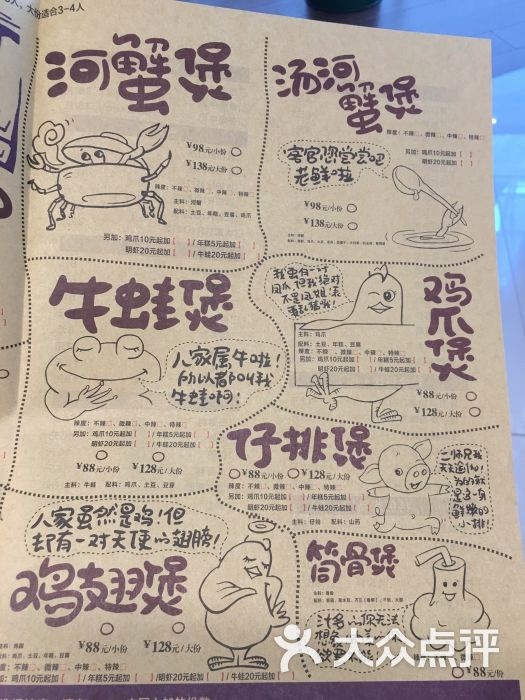 大份适合3-4人
河蟹煲
¥98元/小份
¥138元/大份
辣度：不辣□、微辣□、中辣□、特辣□
主料：河蟹
配料：土豆、年糕、豆腐、鸡爪
另加：鸡爪10元起加【 】/年糕5元起加【 】
明虾20元起加【 】/牛蛙20元起加【 】
汤河蟹煲
辣度：不辣□、微辣□、中辣□、特辣□
另加：鸡爪10元起加【 】
明虾20元起加【 】
客官您尝尝吧
老鲜啦
¥98元/小份
¥138元/大份
牛蛙煲
人家属牛啦！
所以都叫我
牛蛙啊！
辣度：不辣□、微辣□、中辣□、特辣□
另加：鸡爪10元起加【 】/年糕5元起加【 】
明虾20元起加【 】/牛蛙20元起加【 】
¥88元/小份
¥128元/大份
主料：牛蛙
配料：鸡爪、土豆、豆芽
鸡爪煲
我虽有一对
凤爪，但我绝对
不是凤姐，表
再乱猜啦！
主料：鸡爪
配料：土豆、年糕、豆腐
辣度：不辣□、微辣□、中辣□、特辣□
另加：鸡爪10元起加【 】/年糕5元起加【 】
明虾20元起加【 】/牛蛙20元起加【 】
¥88元/小份
¥128元/大份
仔排煲
¥88元/小份
¥128元/大份
辣度：不辣□、微辣□、中辣□、特辣□
另加：鸡爪10元起加【 】/年糕5元起加【 】
明虾20元起加【 】/牛蛙20元起加【 】
主料：仔排
配料：山药
二师兄我
天天追
为的就
是这一身
鲜嫩的
小排
人家虽然是鸡！但
却有一对天使的翅膀！
鸡翅煲
¥88元/小份
¥128元/大份
配料：鸡爪、土豆、年糕、豆腐
辣度：不辣□、微辣□、中辣□、特辣□
鸡爪10元起加【 】/年糕5元起加【 】
/明虾20元起加【 】/牛蛙20元起加【 】
筒骨煲
汁多你无法
想象
¥88元/小份
大众点评